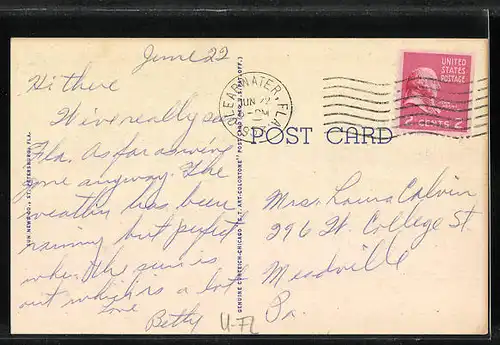 June 22
Hi there
We've really
Fla. As far as
gone anyway. The
weather has been
rainy but perfect
when the sun is
out which is a lot
Love
Betty
U-FL
SUN NEWS CO., ST. PETERSBURG, FLA.
GENUINE CURTEICH-CHICAGO "C. T. ART-COLORTONE" POST CARD
CLEARWATER, FLA.
JUN 22
PM
UNITED
STATES
POSTAGE
2 CENTS 2
POST CARD
Mrs. Louis Calvin
296 W. College St.
Meadville
Pa.